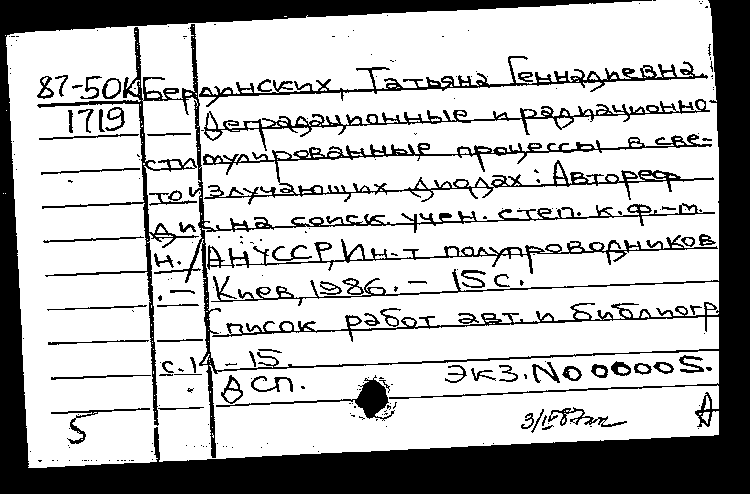 87-50К Бердинских, Татьяна Геннадиевна.
1719 Деградационные и радиационно-
стимулированные процессы в све-
тоизлучающих диодах: Автореф
дис. на соиск. учен. степ. к.ф.-м.
н. / АН УССР, Ин-т полупроводников
.— Киев, 1986. — 15 с.
Список работ авт. и библиогр
с. 14-15.
ДСП. Экз. № 00005.
5 А